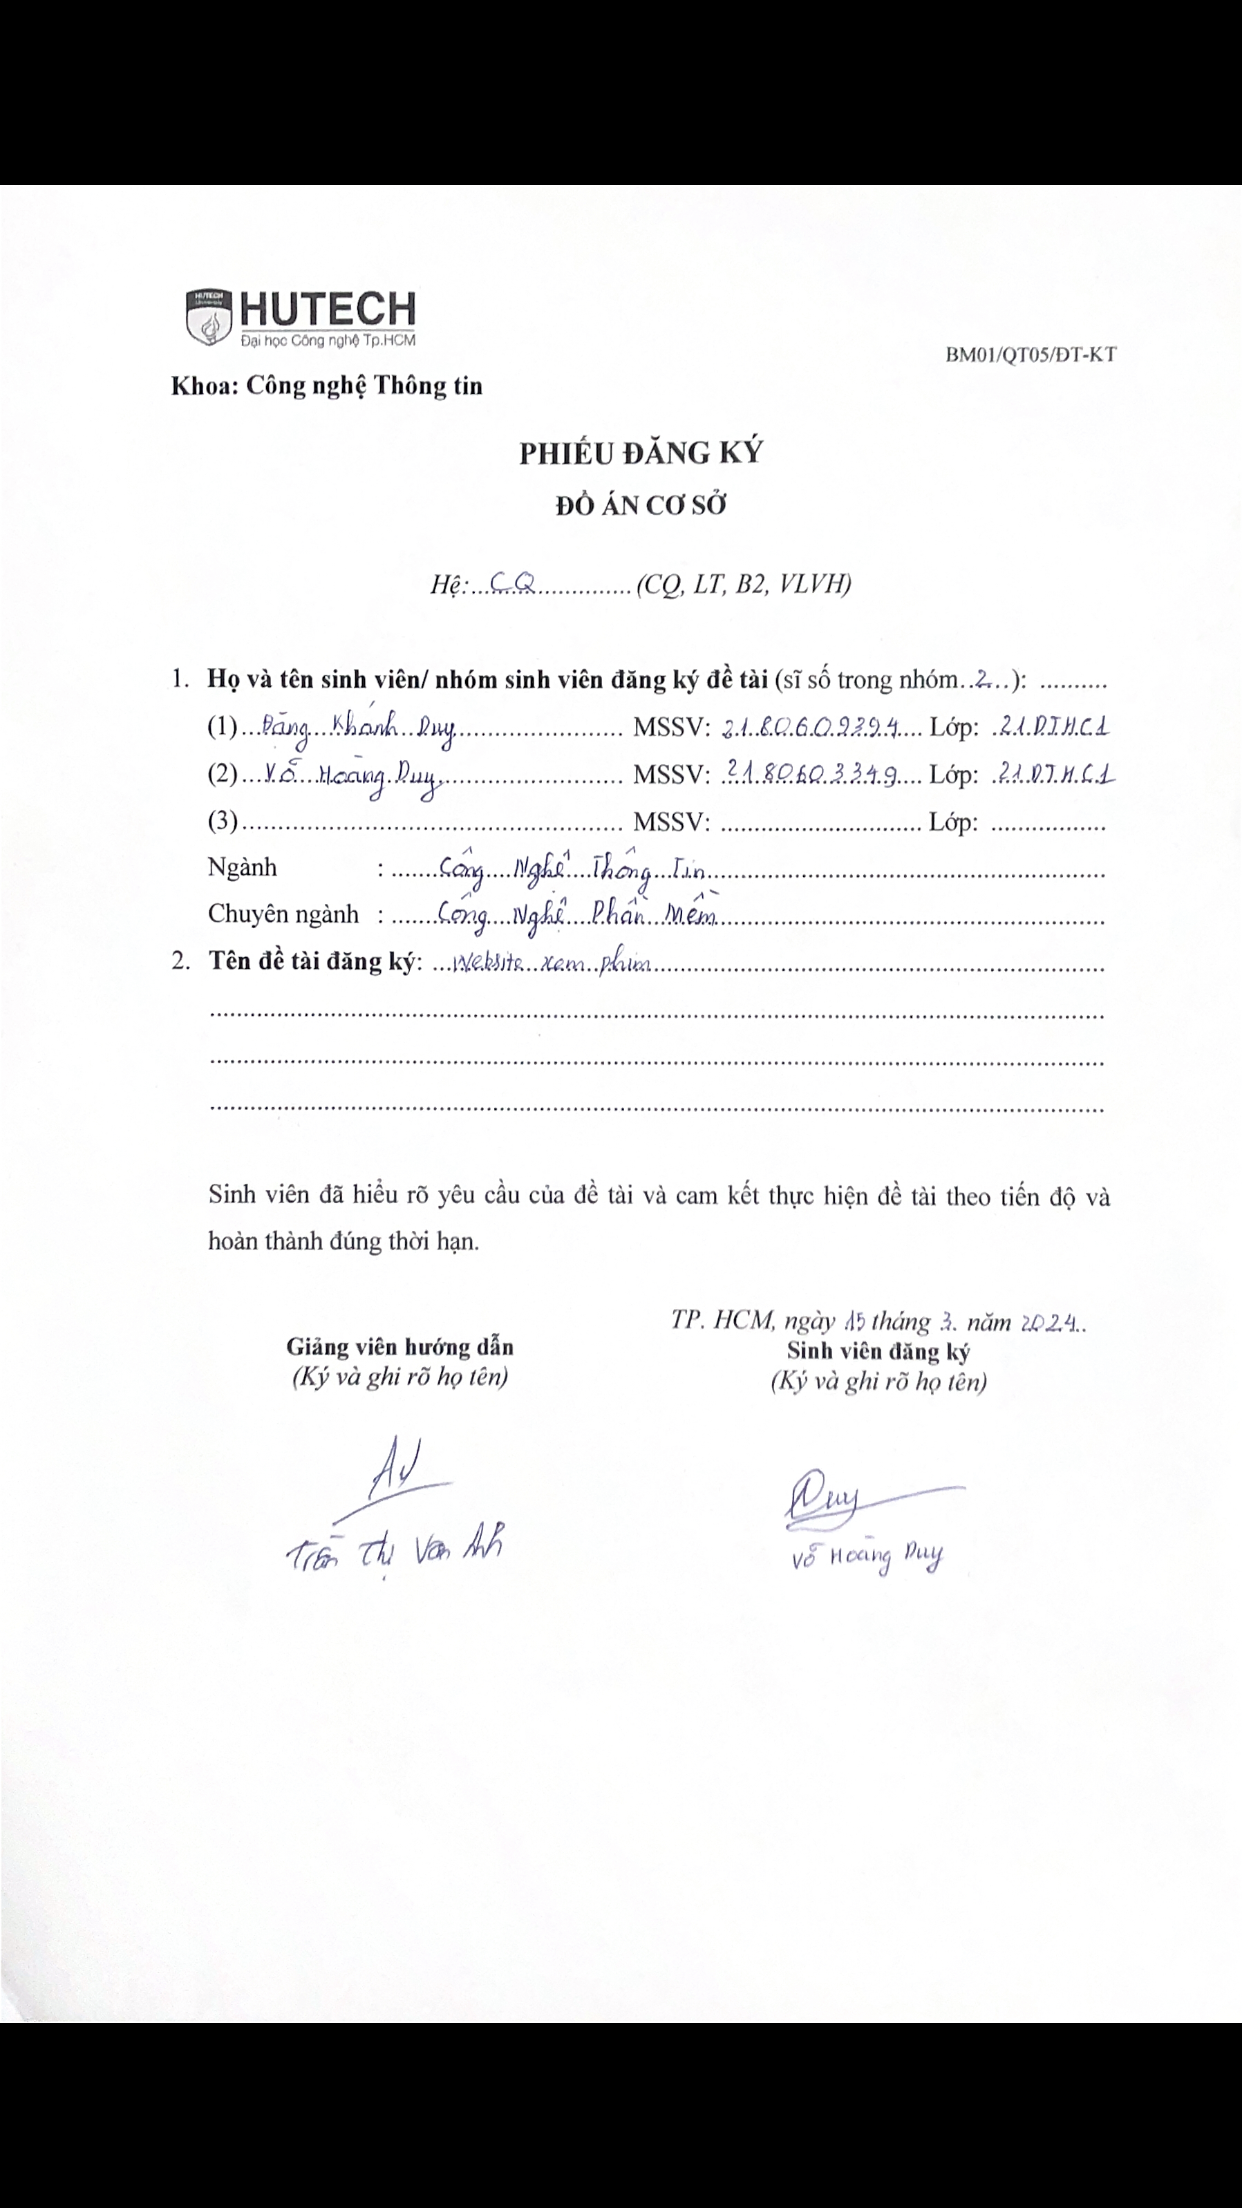 HUTECH
University
HUTECH
Đại học Công nghệ Tp.HCM
BM01/QT05/ĐT-KT
Khoa: Công nghệ Thông tin
PHIẾU ĐĂNG KÝ
ĐỒ ÁN CƠ SỞ
Hệ:...CQ.............. (CQ, LT, B2, VLVH)
1. Họ và tên sinh viên/ nhóm sinh viên đăng ký đề tài (sĩ số trong nhóm..2...): ..........
(1)...Đặng...Khánh...Duy......................... MSSV: 2180609394.... Lớp: .21DTHC1
(2)...Võ...Hoàng.Duy........................... MSSV: 2180603349.... Lớp: .21DTHC1
(3)......................................................... MSSV: .............................. Lớp: .................
Ngành : .......Công....Nghệ...Thông...Tin............................................................
Chuyên ngành : ......Công...Nghệ...Phần...Mềm..........................................................
2. Tên đề tài đăng ký: ...Website...xem..phim....................................................................
Sinh viên đã hiểu rõ yêu cầu của đề tài và cam kết thực hiện đề tài theo tiến độ và
hoàn thành đúng thời hạn.
TP. HCM, ngày 15 tháng 3. năm 2024..
Giảng viên hướng dẫn Sinh viên đăng ký
(Ký và ghi rõ họ tên) (Ký và ghi rõ họ tên)
Duy
Trần Thị Vân Anh Võ Hoàng Duy